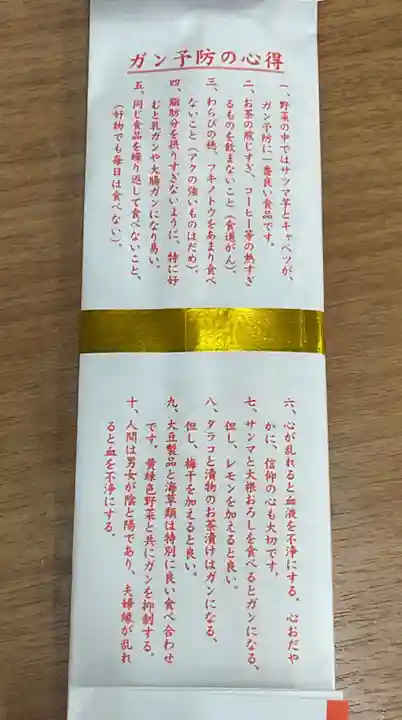 ガン予防の心得
一、野菜の中ではサツマ芋とキャベツが、
ガン予防に一番良い食品です。
二、お茶の煎じすぎ、コーヒー等の熱すぎ
るものを飲まないこと（食道がん）。
三、わらびの穂、フキノトウをあまり食べ
ないこと（アクの強いものはだめ）。
四、脂肪分を摂りすぎないように、特に好
むと乳ガンや大腸ガンになり易い。
五、同じ食品を繰り返して食べないこと、
（好物でも毎日は食べない）。
六、心が乱れると血液を不浄にする。心おだや
かに、信仰の心も大切です。
七、サンマと大根おろしを食べるとガンになる、
但し、レモンを加えると良い。
八、タラコと漬物のお茶漬けはガンになる、
但し、梅干を加えると良い。
九、大豆製品と海草類は特別に良い食べ合わせ
です。黄緑色野菜と共にガンを抑制する。
十、人間は男女が陰と陽であり、夫婦縁が乱れ
ると血を不浄にする。